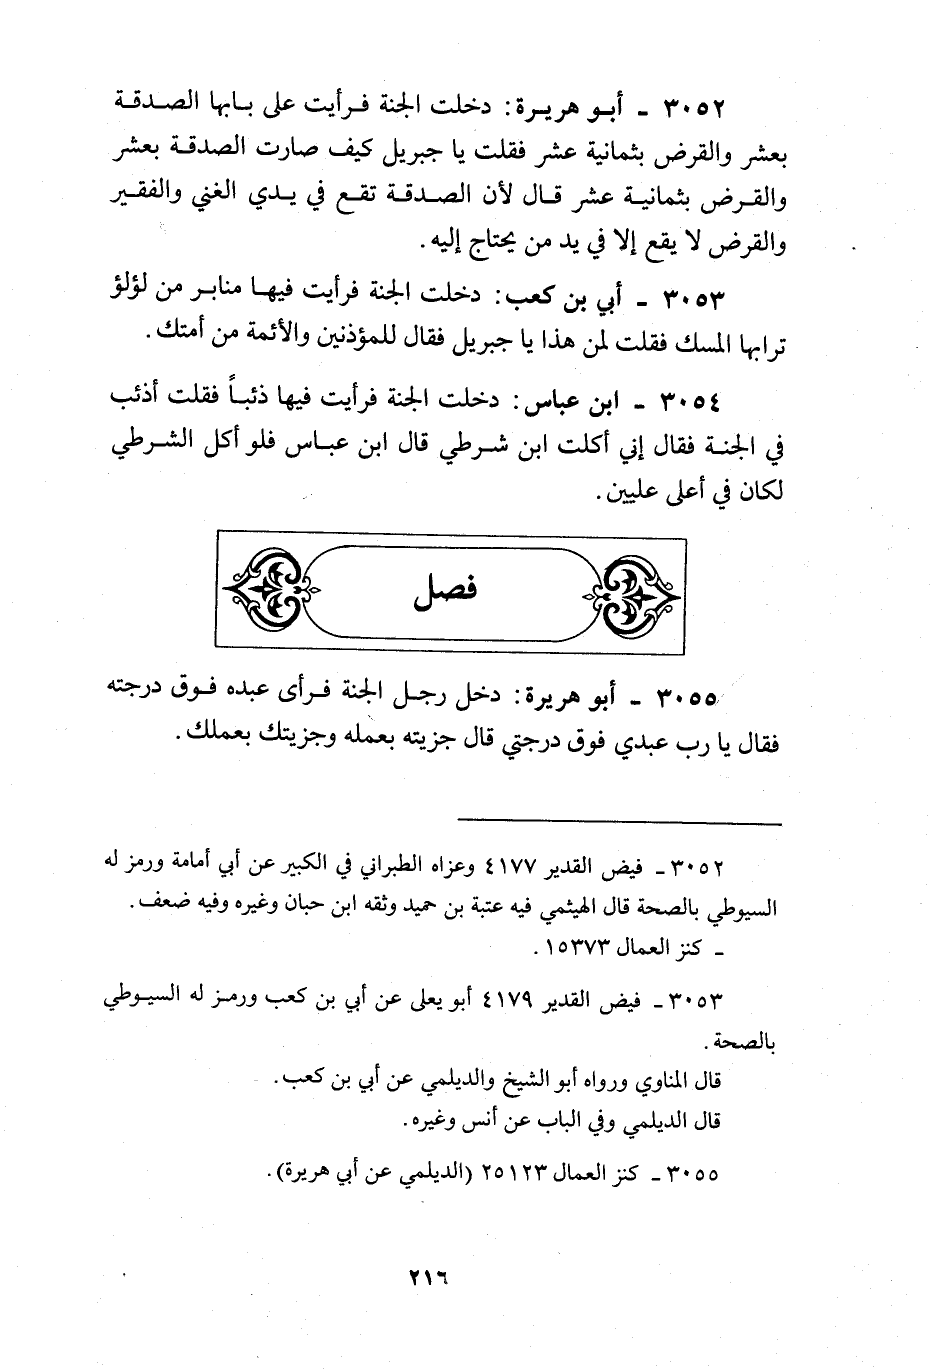 ٣٠٥٢ ـ أبـو هريـرة: دخلت الجنة فـرأيت على بـابها الصـدقـة
بعشر والقرض بثمانية عشر فقلت يا جبريل كيف صارت الصدقـة بعشر
والقـرض بثمانيـة عشر قـال لأن الصـدقـة تقـع في يـدي الغني والفقـير
والقرض لا يقع إلا في يد من يحتاج إليه.
٣٠٥٣ ـ أبي بن كعب: دخلت الجنة فرأيت فيهـا منابـر من لؤلؤ
ترابها المسك فقلت لمن هذا يا جبريل فقال للمؤذنين والأئمة من أمتك.
٣٠٥٤ ـ ابن عباس: دخلت الجنة فرأيت فيها ذئبـاً فقلت أذئب
في الجنـة فقال إني أكلت ابن شـرطي قال ابن عبـاس فلو أكل الشـرطي
لكان في أعلى عليين.
فصل
٣٠٥٥ ـ أبو هريرة: دخل رجـل الجنة فـرأى عبده فـوق درجته
فقال يا رب عبدي فوق درجتي قال جزيته بعمله وجزيتك بعملك.
٣٠٥٢ ـ فيض القدير ٤١٧٧ وعزاه الطبراني في الكبير عن أبي أمامة ورمز له
السيوطي بالصحة قال الهيثمي فيه عتبة بن حميد وثقه ابن حبان وغيره وفيه ضعف.
ـ كنز العمال ١٥٣٧٣.
٣٠٥٣ ـ فيض القدير ٤١٧٩ أبو يعلى عن أبي بن كعب ورمـز له السيـوطي
بالصحة.
قال المناوي ورواه أبو الشيخ والديلمي عن أبي بن كعب.
قال الديلمي وفي الباب عن أنس وغيره.
٣٠٥٥ ـ كنز العمال ٢٥١٢٣ (الديلمي عن أبي هريرة).
٢١٦